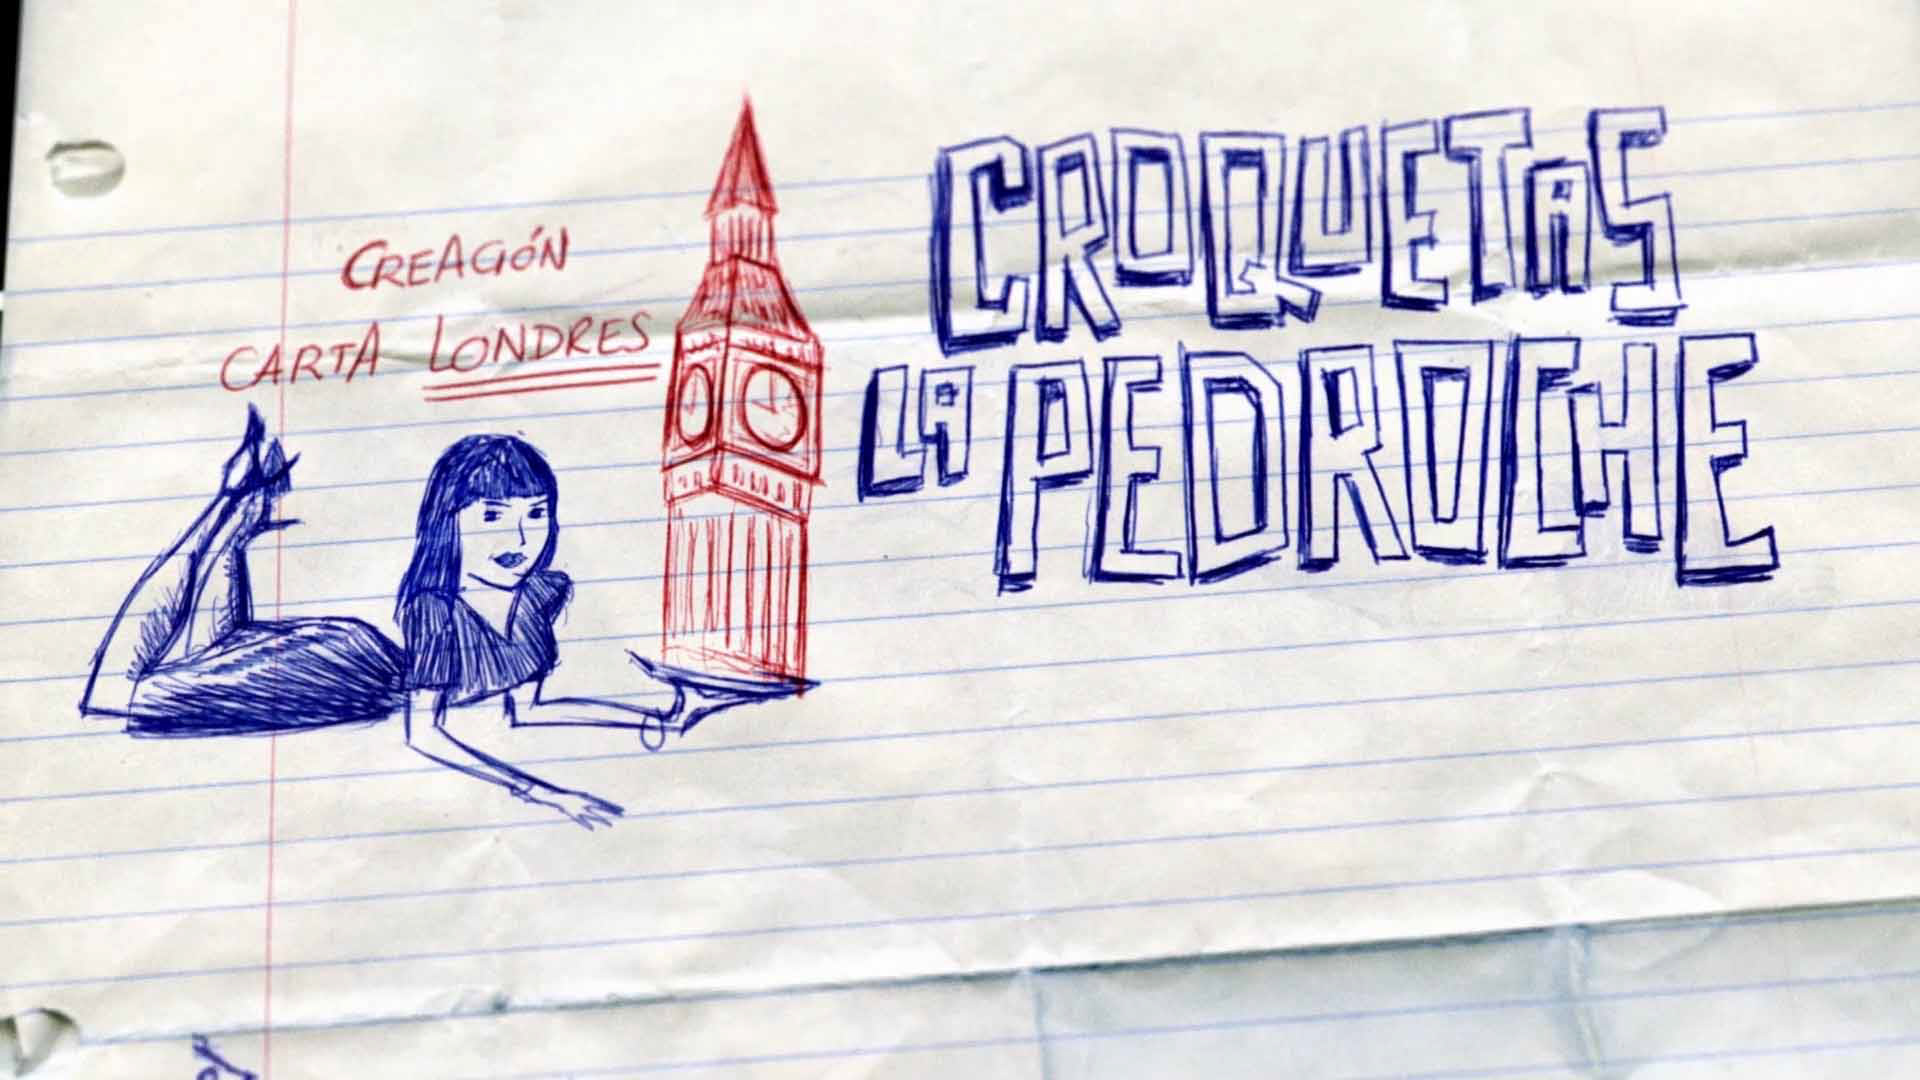 CREACIÓN
CARTA LONDRES
CROQUETAS
LA PEDROCHE